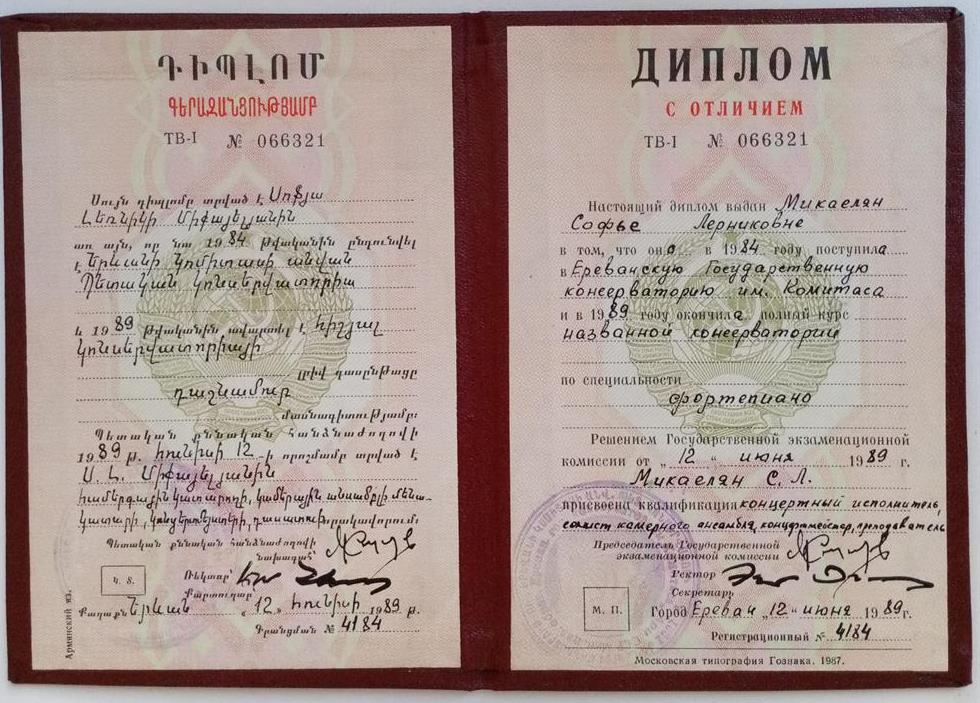 ԴԻՊԼՈՄ
ԳԵՐԱԶԱՆՑՈՒԹՅԱՄԲ
ТВ-I № 066321
Սույն դիպլոմը տրված է Սոֆյա
Լեռնիկի Միքայելյանին
առ այն, որ նա 1984 թվականին ընդունվել
է Երևանի Կոմիտասի անվան
Պետական կոնսերվատորիա
և 1989 թվականին ավարտել է հիշյալ
կոնսերվատորիայի
լրիվ դասընթացը
դաշնամուր
մասնագիտությամբ:
Պետական քննական հանձնաժողովի
1989 թ. հունիսի 12-ի որոշմամբ տրված է
Ս. Լ. Միքայելյանին
համերգային կատարողի, կամերային անսամբլի մենա-
կատարի, կոնցերտմեյստերի, դասատուի որակավորում:
Պետական քննական հանձնաժողովի
նախագահ՝
Ռեկտոր՝
Կ. Տ.
Քարտուղար՝
Քաղաք Երևան «12» հունիսի 1989 թ.
Գրանցման № 4184
Армянский яз.
ДИПЛОМ
С ОТЛИЧИЕМ
ТВ-I № 066321
Настоящий диплом выдан Микаелян
Софье Лерниковне
в том, что она в 1984 году поступила
в Ереванскую Государственную
консерваторию им. Комитаса
и в 1989 году окончила полный курс
названной консерватории
по специальности
фортепиано
Решением Государственной экзаменационной
комиссии от „12“ июня 1989 г.
Микаелян С. Л.
присвоена квалификация концертный исполнитель,
солист камерного ансамбля, концертмейстер, преподаватель
Председатель Государственной
экзаменационной комиссии
Ректор
Секретарь
М. П.
Город Ереван „12“ июня 1989 г.
Регистрационный № 4184
Московская типография Гознака. 1987.